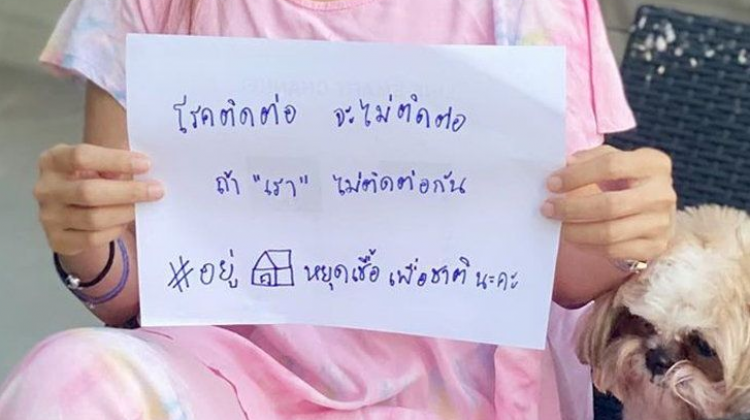 โรคติดต่อ จะไม่ติดต่อ
ถ้า "เรา" ไม่ติดต่อกัน
#อยู่ หยุดเชื้อ เพื่อชาติ นะคะ